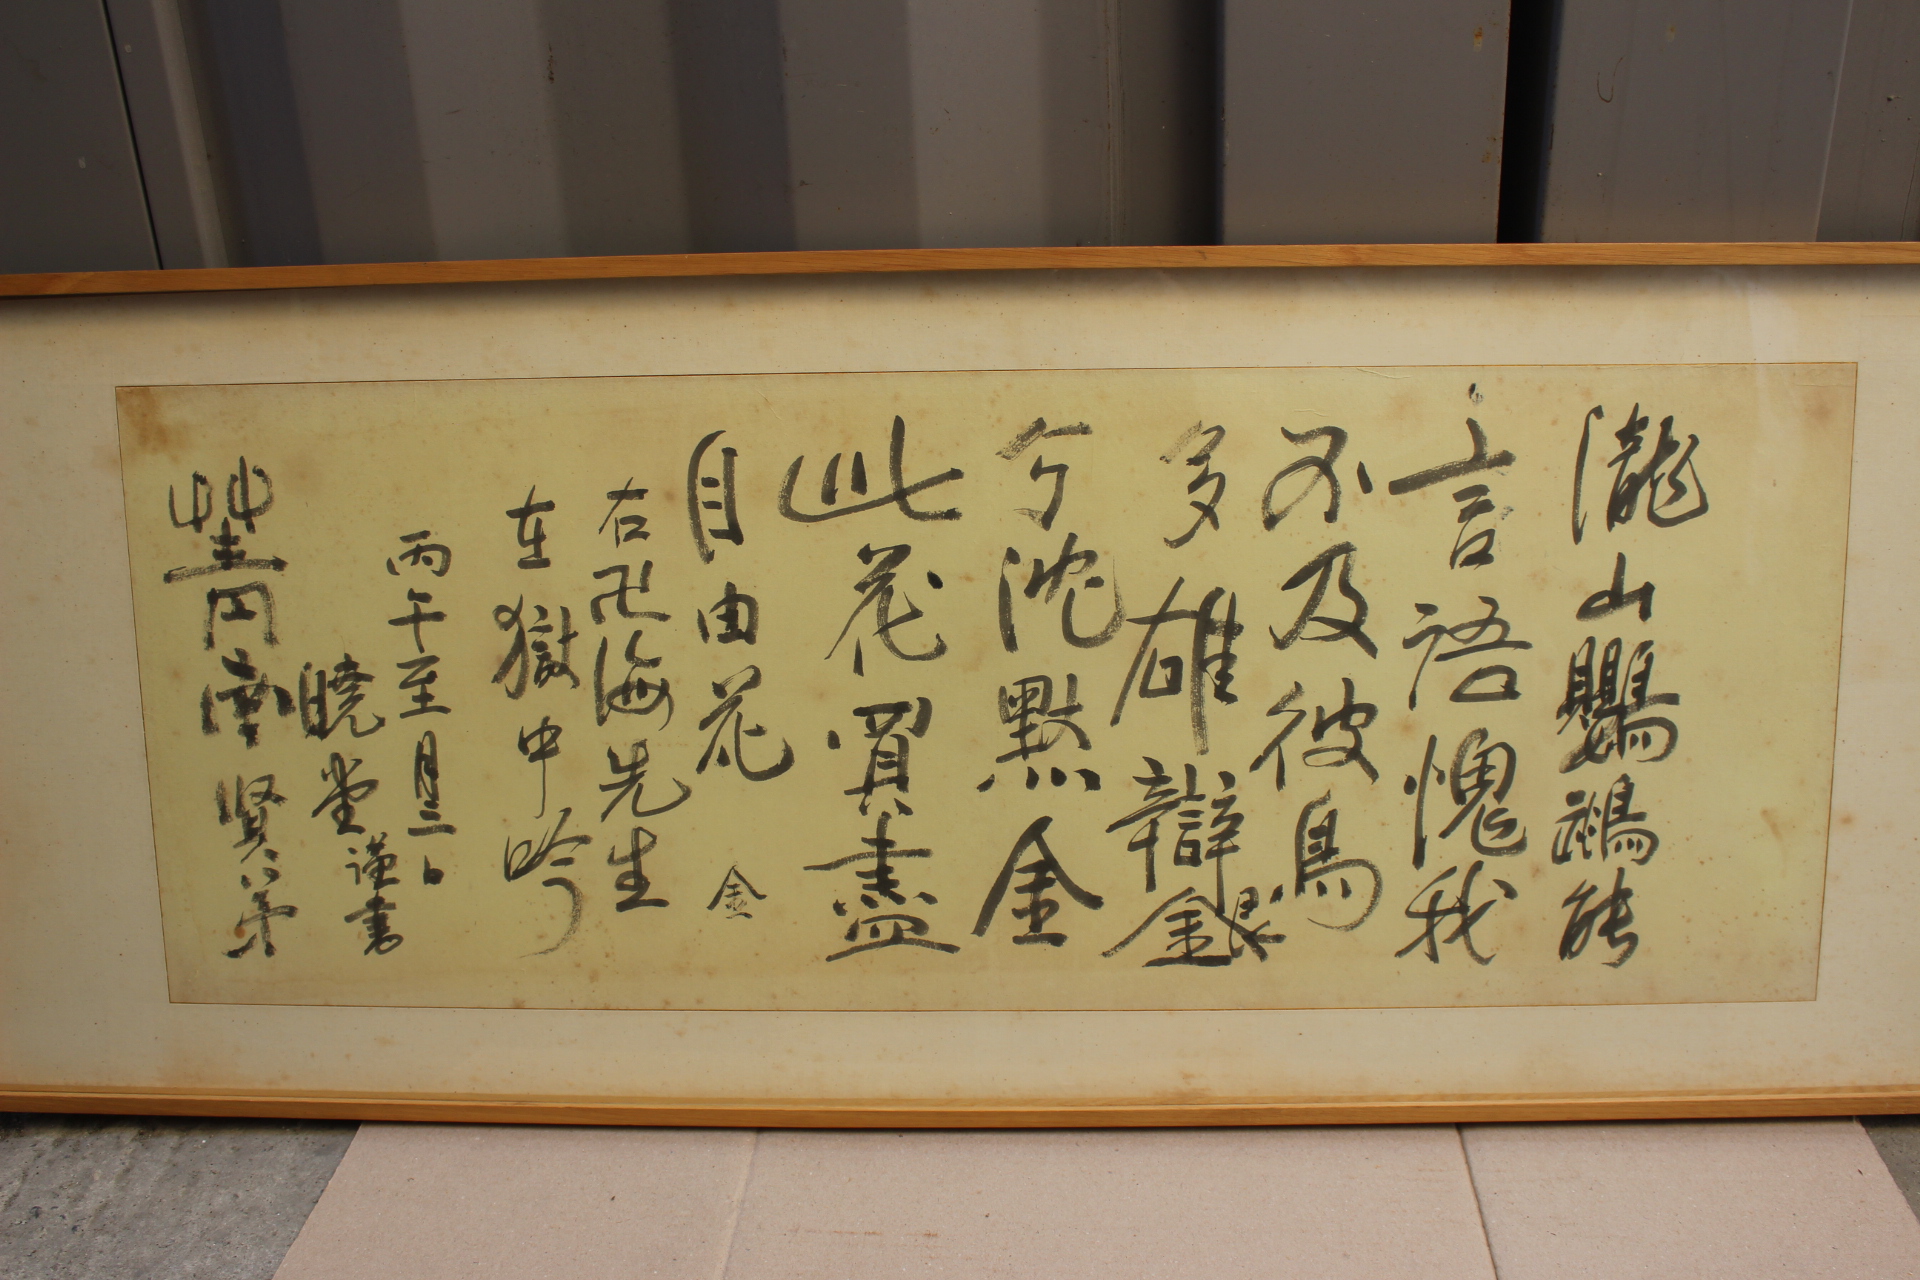 瀧山鸚鵡能
言語愧我
不及彼鳥
多雄辯銀
兮沈黙金
此花買盡
自由花 金
右卍海先生
在獄中吟
丙午至月三日
曉堂謹書
賢弟